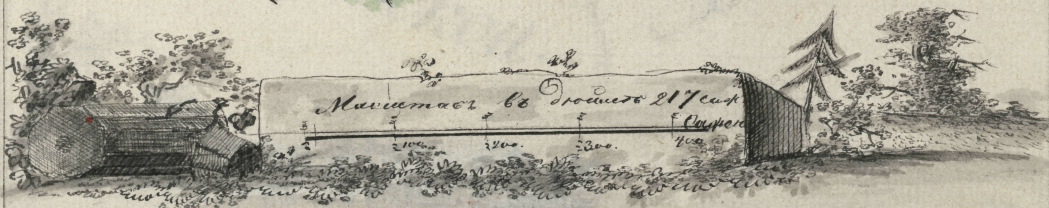 Масштабъ въ дюймѣ 217 саж
Сажен
100. 200. 300. 400